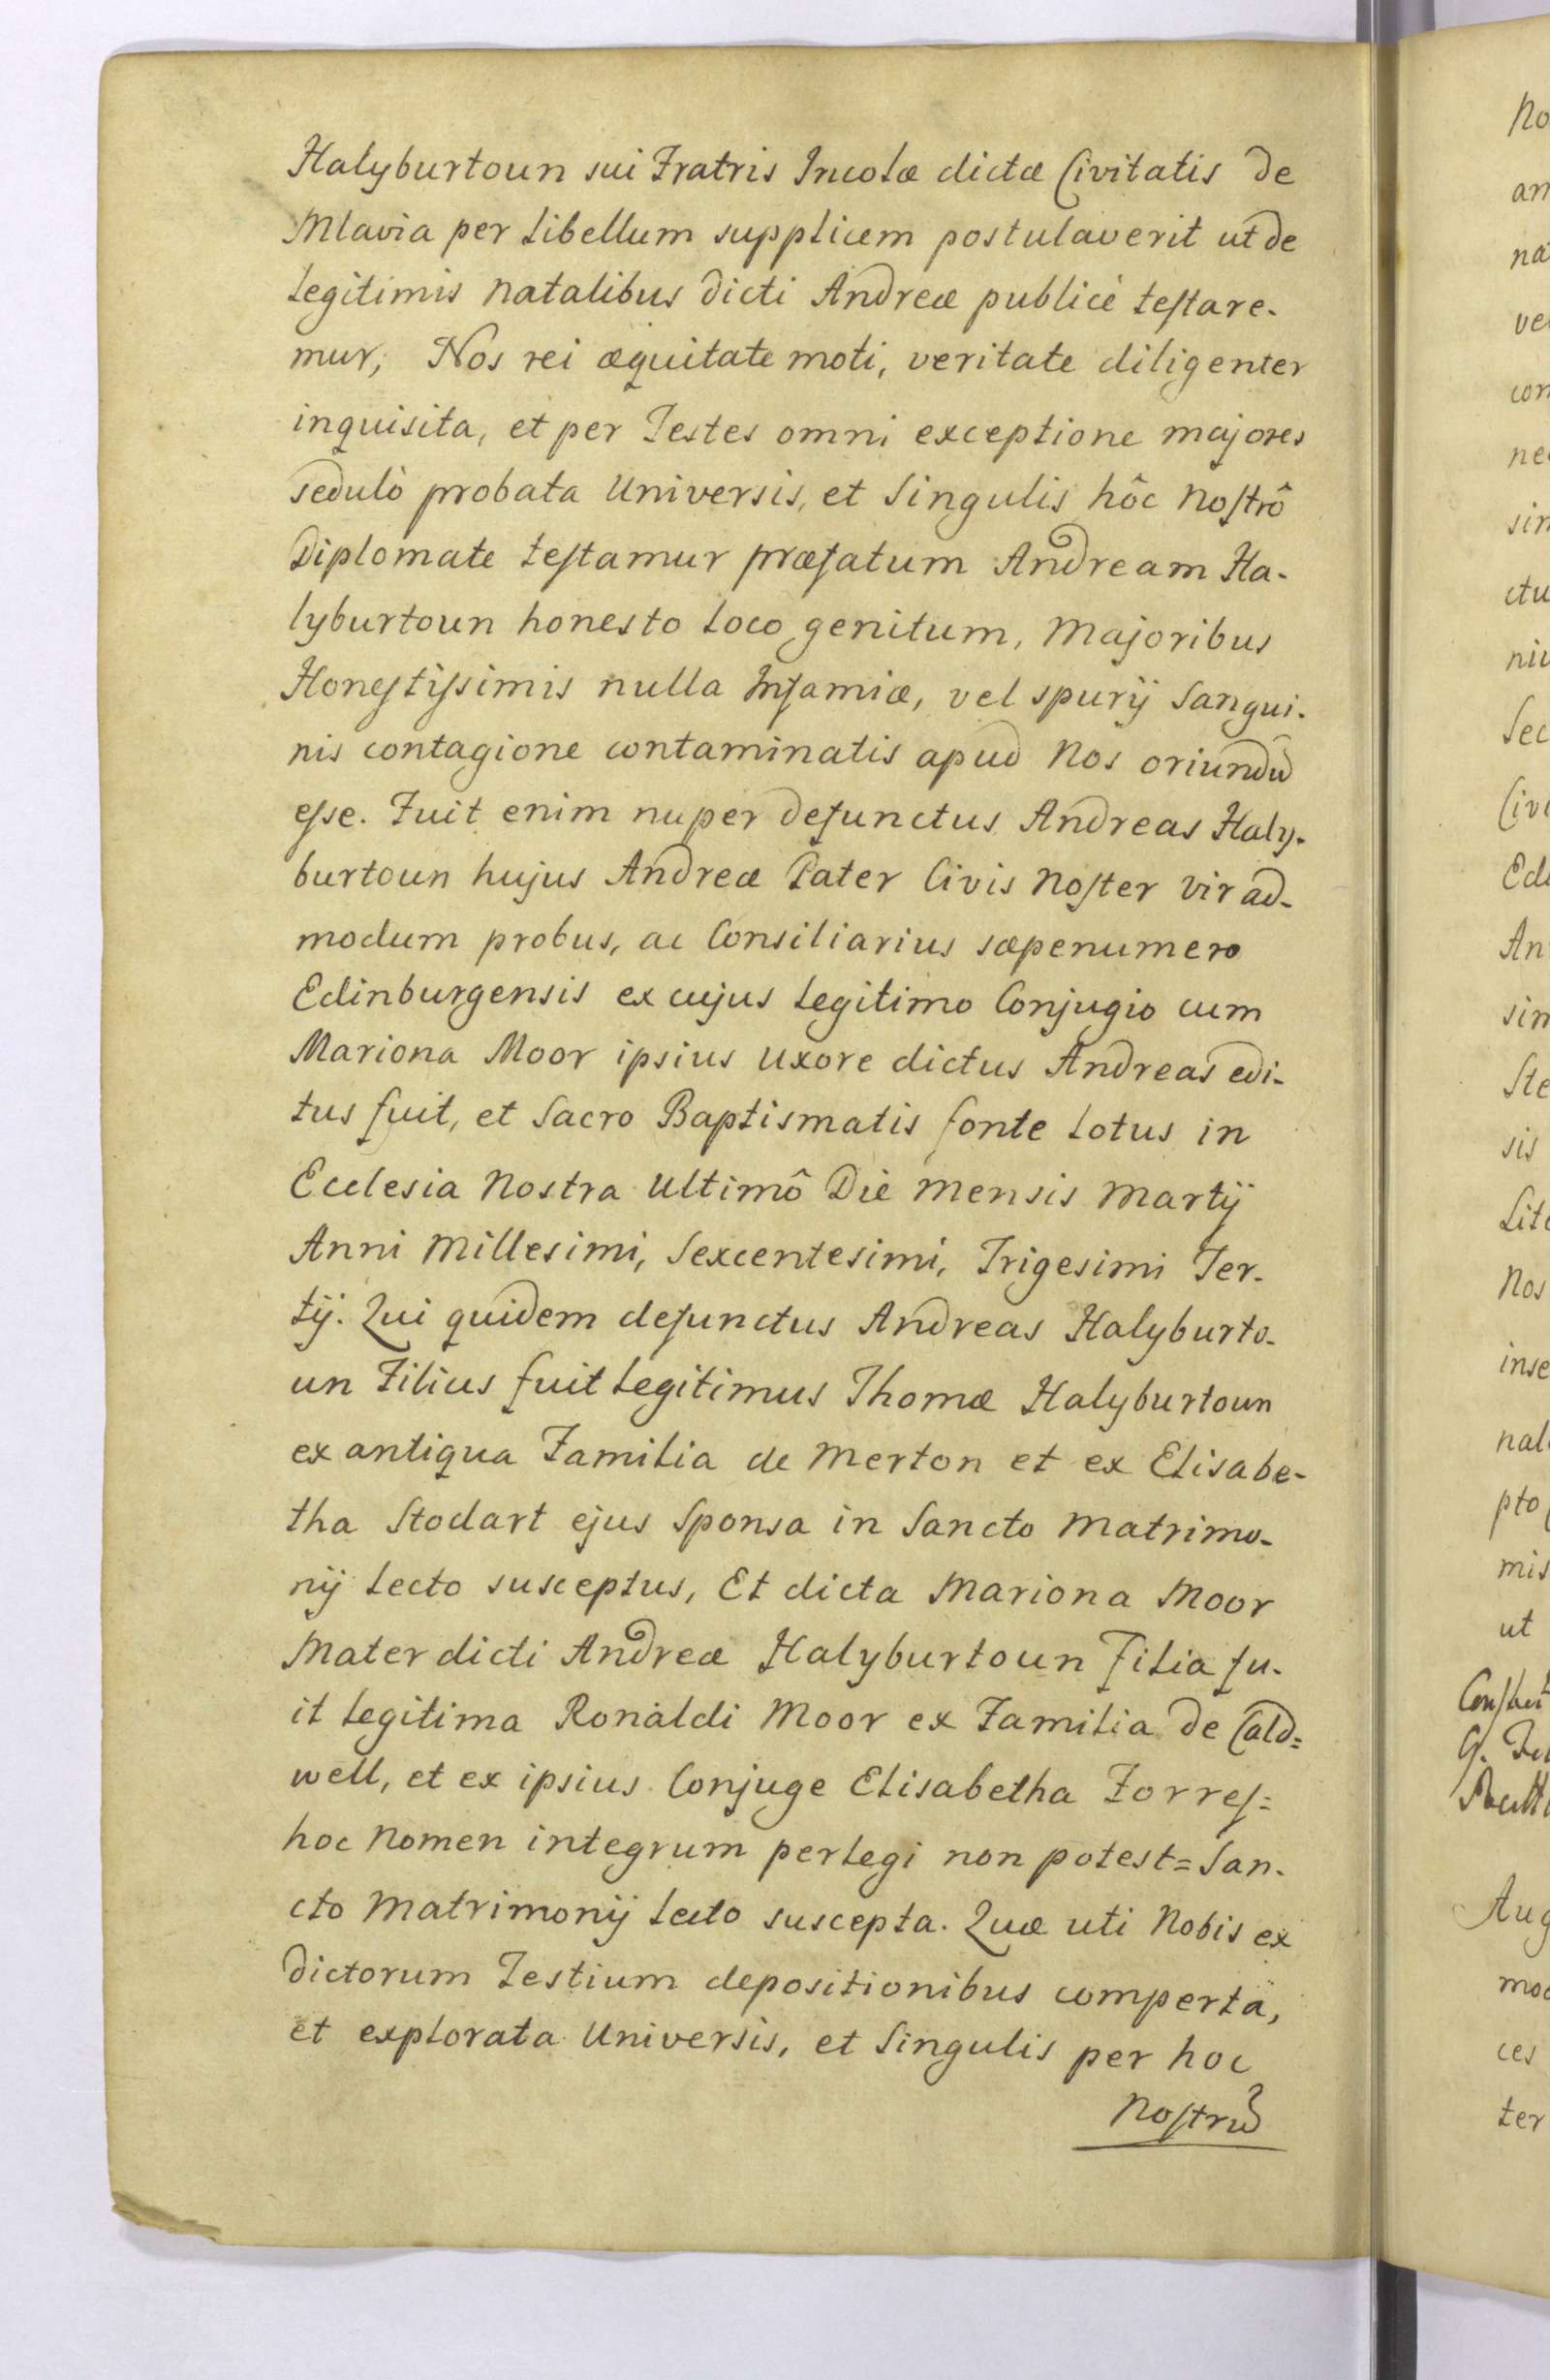 Halyburtoun sui Fratris Incolæ dictæ Civitatis de
Mlavia per Libellum supplicem postulaverit ut de
Legitimis Natalibus dicti Andreæ publicè testare-
mur, Nos rei æquitate moti, veritate diligenter
inquisita, et per Testes omni exceptione majores
sedulò probata Universis, et Singulis hôc Nostrô
Diplomate testamur præfatum Andream Ha-
lyburtoun honesto Loco genitum, Majoribus
Honestissimis nulla Infamiæ, vel spurÿ Sangui-
nis contagione contaminatis apud Nos oriundũ
esse. Fuit enim nuper defunctus Andreas Haly-
burtoun hujus Andreæ Pater Civis Noster Vir ad-
modum probus, ac Consiliarius sæpenumero
Edinburgensis ex cujus Legitimo Conjugio cum
Mariona Moor ipsius Uxore dictus Andreas edi-
tus fuit, et Sacro Baptismatis fonte Lotus in
Ecclesia Nostra Ultimô Die Mensis Martÿ
Anni Millesimi, Sexcentesimi, Trigesimi Ter-
tÿ. Qui quidem defunctus Andreas Halyburto-
un Filius fuit Legitimus Thomæ Halyburtoun
ex antiqua Familia de Merton et ex Elisabe-
tha Stodart ejus Sponsa in Sancto Matrimo-
nÿ Lecto susceptus, Et dicta Mariona Moor
Mater dicti Andreæ Halyburtoun Filia fu-
it Legitima Ronaldi Moor ex Familia de Cald=
well, et ex ipsius Conjuge Elisabetha Forres=
hoc Nomen integrum perlegi non potest= San-
cto Matrimonÿ Lecto suscepta. Quæ uti Nobis ex
dictorum Testium depositionibus comperta,
et explorata Universis, et Singulis per hoc
Nostrũ
No
an
na
ve
con
ne
sin
ctu
niu
Sec
Civi
Edi
An
sin
Ste
sis
Lite
Nos
inse
nal
pto
mis
ut
Aug
mod
ces
ter